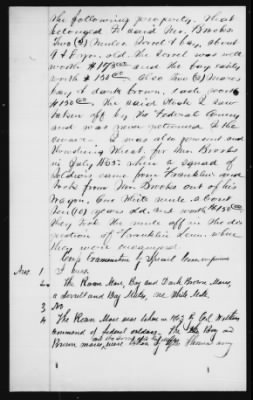 the following property. that
belonged to said Mr. Brooks
Two (2) Mules Sorrel & bay, about
yrs. old. the Sorrel was well
worth $175.00 and the bay easily
worth $150.00 Also Two (2) Mares
bay & dark brown, each worth
$130.00. The said Stock I saw
taken off by the Federal Army
and was never returned to the
owner. I was also present and
threshing Wheat for Mr Brooks
in July 1863. when a squad of
Soldiers came from Franklin and
took from Mr Brooks out of his
wagon. One White mule. about
Ten (10) years old, and worth $
they took the mule off in the di-
rection of Franklin Tenn where
they were encamped.
Cross Examination by Special Commissioner
Ans. 1
2 The Roan Mare, Bay and Dark Brown Mares,
a Sorrell and Bay Mules, one White Mule.
3 No
4 The Roan Mare was taken in 1863 by Col.
command of federal soldiers. The Bay and
Brown mares, were taken by the army